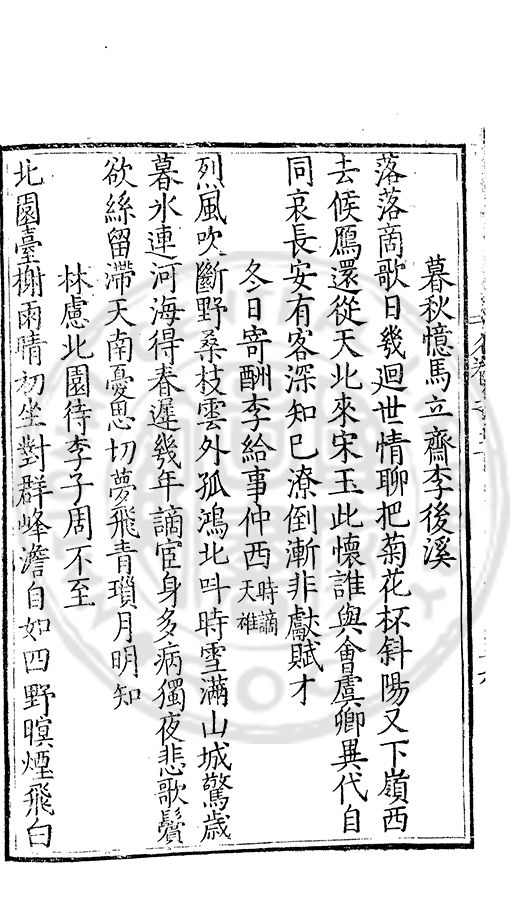 暮秋憶馬立齋李後溪
落落商歌日幾迴世情聊把菊花杯斜陽又下嶺西
去候鴈還從天北來宋玉此懷誰與會虞卿異代自
同哀長安有客深知已潦倒漸非獻賦才
冬日寄酬李給事仲西時謫天雄
烈風吹斷野桑枝雲外孤鴻北呌時雪滿山城驚歲
暮氷連河海得春遲幾年謫宦身多病獨夜悲歌鬢
欲絲留滯天南憂思切夢飛青瑣月明知
林慮北園待李子周不至
北園臺榭雨晴初坐對群峰澹自如四野暝煙飛白